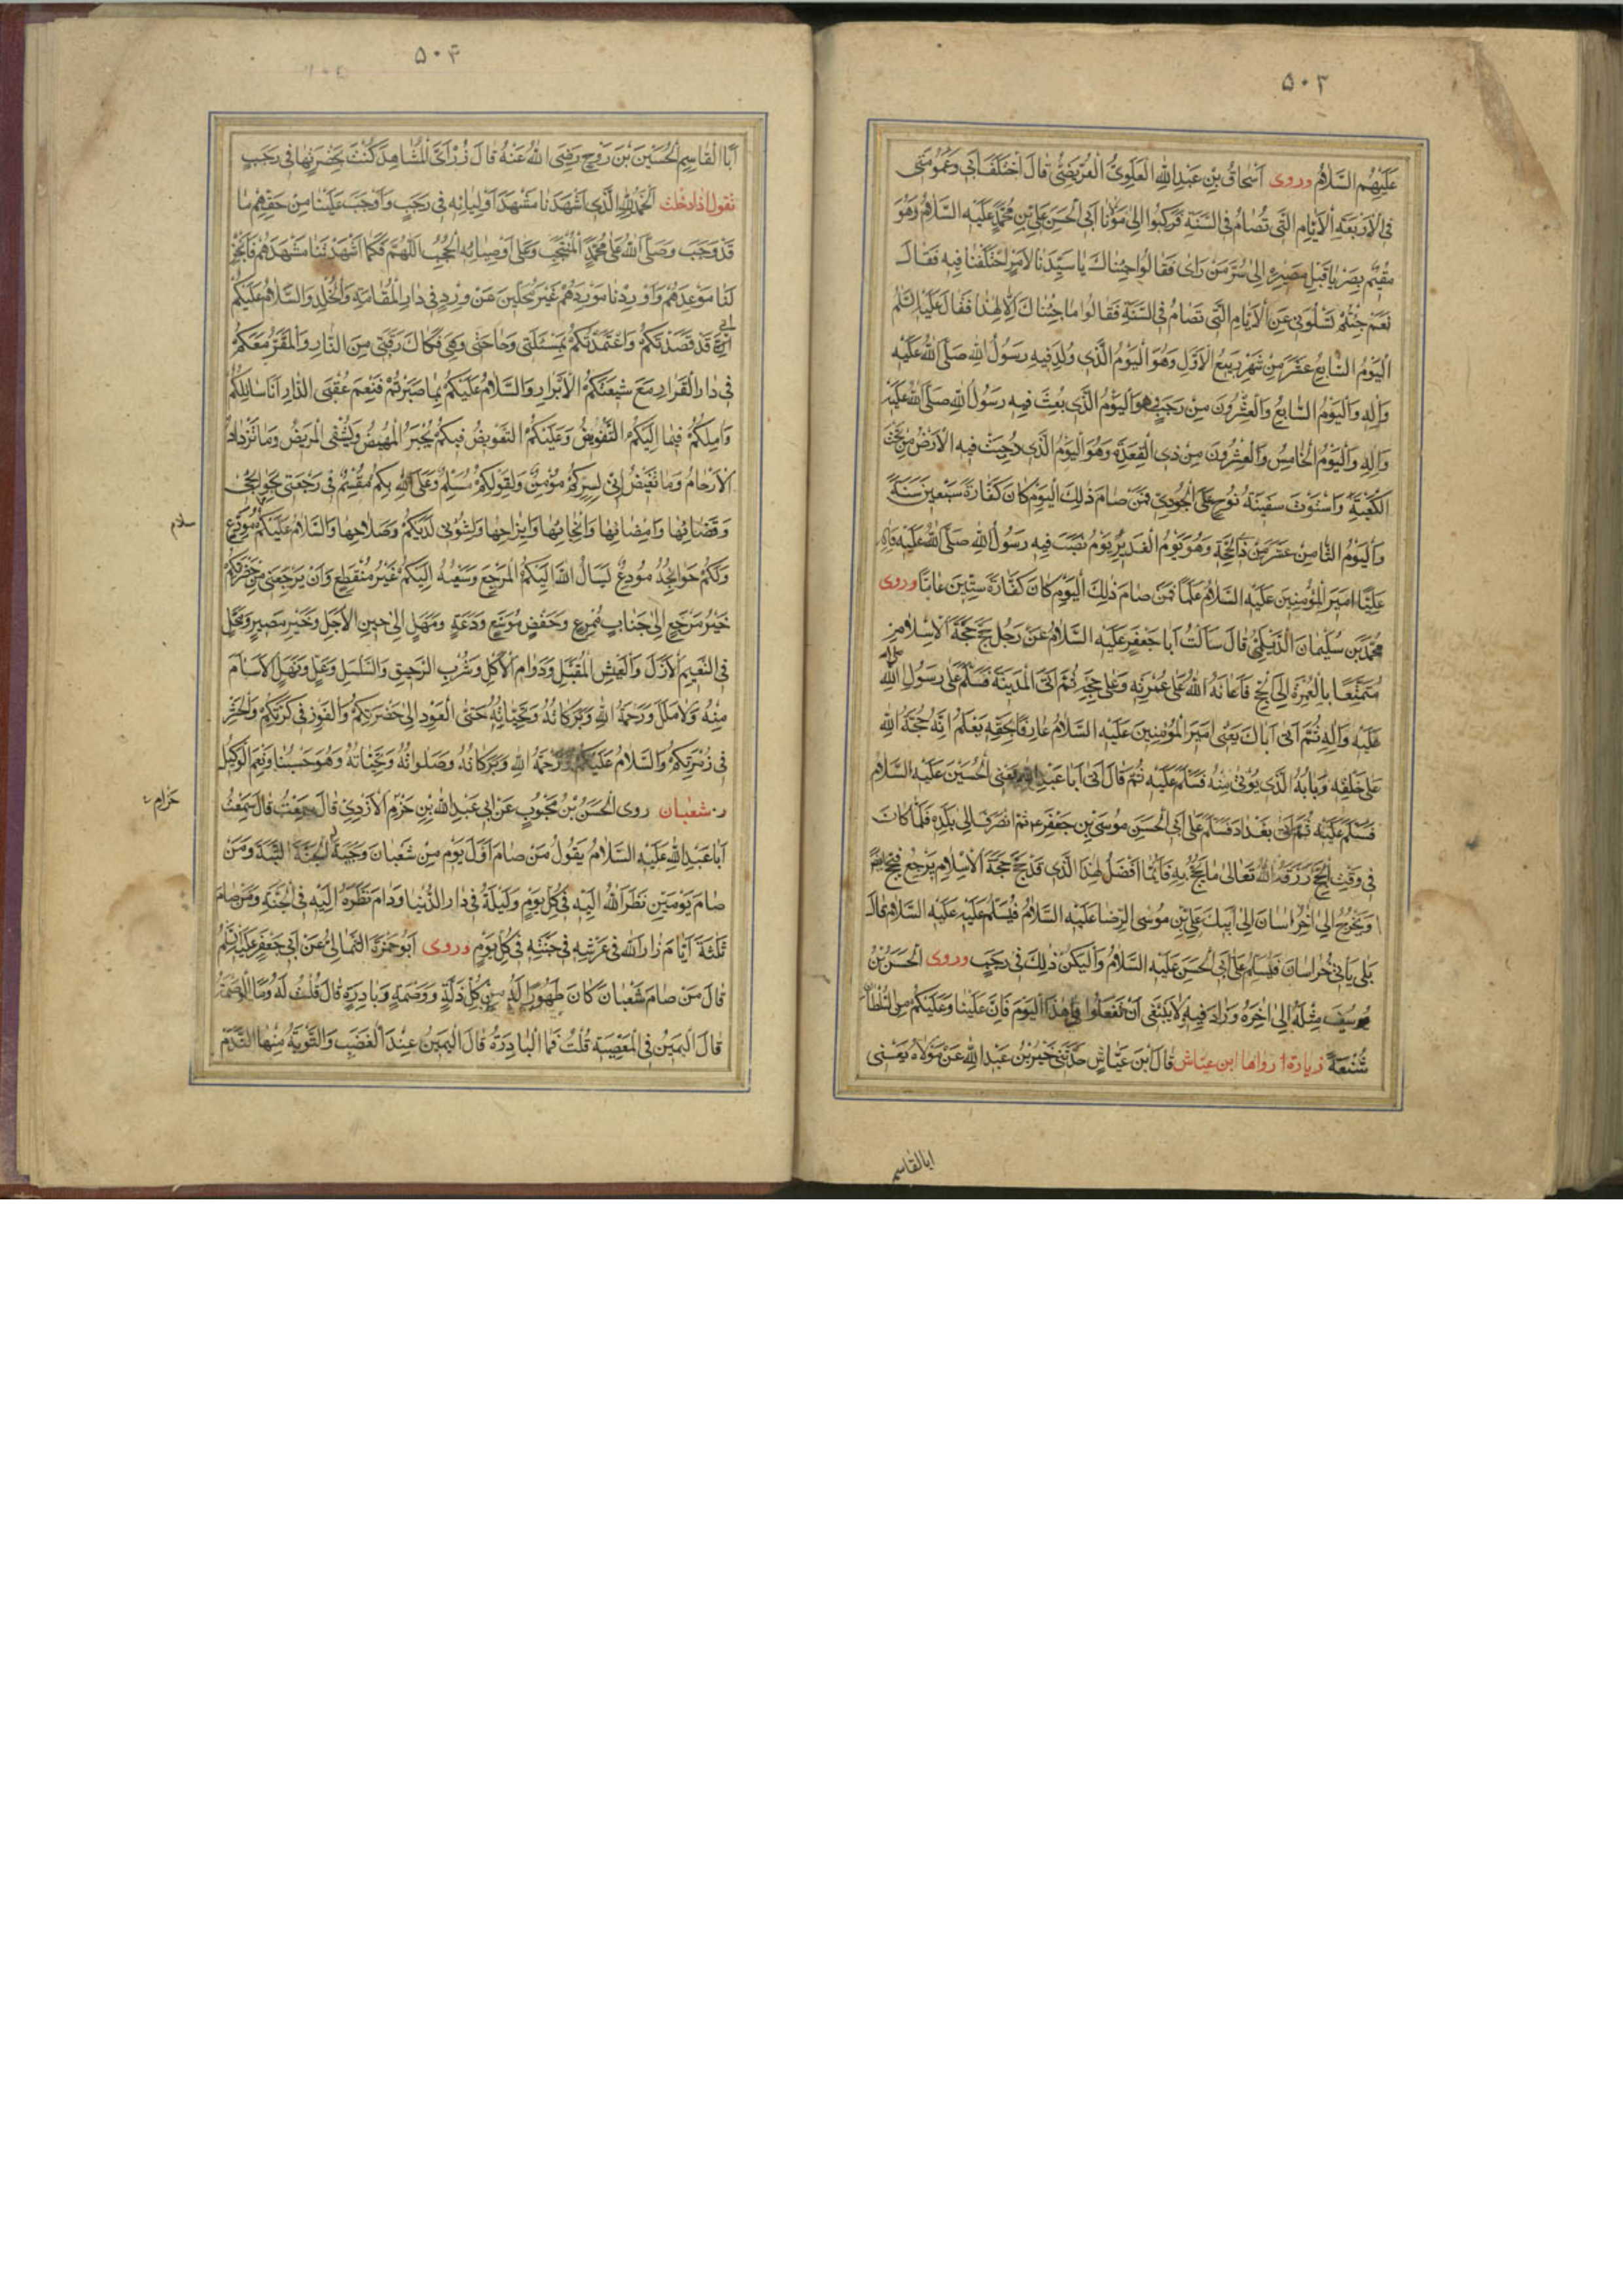 ۵۰۳
عَلَيْهِمُ السَّلامُ وروى اَسْحاقُ بْنِ عَبْدِ اللهِ الْعَلَوِىُّ الْعُرَيْضِىُّ قالَ اخْتَلَفَ اَبى وَعُمُومَتى
فِى الْاَرْبَعَةِ الْاَيّامِ الَّتى تُصامُ فِى السَّنَةِ فَرَكِبُوا اِلى مَوْلانا اَبِى الْحَسَنِ عَلِىِّ بْنِ مُحَمَّدٍ عَلَيْهِ السَّلامُ وَهُوَ
مُقيمٌ بِصَرْيا قَبْلَ مَصيرِهِ اِلى سُرَّ مَنْ رَاى فَقالُوا جِئْناكَ يا سَيِّدَنا لِاَمْرٍ اخْتَلَفْنا فيهِ فَقالَ
نَعَمْ جِئْتُمْ تَسْئَلُونى عَنِ الْاَيّامِ الَّتى تُصامُ فِى السَّنَةِ فَقالُوا ما جِئْناكَ اِلّا لِهذا فَقالَ عَلَيْهِ السَّلَمُ
اَلْيَوْمُ السّابِعُ عَشَرَ مِنْ شَهْرِ رَبيعِ الْاَوَّلِ وَهُوَ الْيَوْمُ الَّذى وُلِدَ فيهِ رَسُولُ اللهِ صَلَّى اللهُ عَلَيْهِ
وَآلِهِ وَالْيَوْمُ السّابِعُ وَالْعِشْرُونَ مِنْ رَجَبٍ وَهُوَ الْيَوْمُ الَّذى بُعِثَ فيهِ رَسُولُ اللهِ صَلَّى اللهُ عَلَيْهِ
وَآلِهِ وَالْيَوْمُ الْخامِسُ وَالْعِشْرُونَ مِنْ ذِى الْقَعْدَةِ وَهُوَ الْيَوْمُ الَّذى دُحِيَتْ فيهِ الْاَرْضُ مِنْ تَحْتِ
الْكَعْبَةِ وَاسْتَوَتْ سَفينَةُ نُوحٍ عَلَى الْجُودِىِّ فَمَنْ صامَ ذلِكَ الْيَوْمَ كانَ كَفّارَةَ سَبْعينَ سَنَةً
وَالْيَوْمُ الثّامِنَ عَشَرَ مِنْ ذِى الْحِجَّةِ وَهُوَ يَوْمُ الْغَديرِ يَوْمُ نَصَبَ فيهِ رَسُولُ اللهِ صَلَّى اللهُ عَلَيْهِ وَآلِهِ
عَلِيّاً اَميرَ الْمُؤْمِنينَ عَلَيْهِ السَّلامُ عَلَماً فَمَنْ صامَ ذلِكَ الْيَوْمَ كانَ كَفّارَةَ سِتّينَ عاماً وروى
مُحَمَّدُ بْنُ سُلَيْمانَ الدَّيْلَمِىُّ قالَ سَاَلْتُ اَبا جَعْفَرٍ عَلَيْهِ السَّلامُ عَنْ رَجُلٍ حَجَّ حَجَّةَ الْاِسْلامِ
مُتَمَتِّعاً بِالْعُمْرَةِ اِلَى الْحَجِّ فَاَعانَهُ اللهُ عَلى عُمْرَتِهِ وَعَلى حَجِّهِ ثُمَّ اَتَى الْمَدينَةَ فَسَلَّمَ عَلى رَسُولِ اللهِ صلى الله
عَلَيْهِ وَآلِهِ ثُمَّ اَتى اَباكَ يَعْنى اَميرَ الْمُؤْمِنينَ عَلَيْهِ السَّلامُ عارِفاً بِحَقِّهِ يَعْلَمُ اَنَّهُ حُجَّةُ اللهِ
عَلى خَلْقِهِ وَبابُهُ الَّذى يُؤْتى مِنْهُ فَسَلَّمَ عَلَيْهِ ثُمَّ قالَ اَتى اَبا عَبْدِ اللهِ يَعْنِى الْحُسَيْنَ عَلَيْهِ السَّلامُ
فَسَلَّمَ عَلَيْهِ ثُمَّ اَتى بَغْدادَ فَسَلَّمَ عَلى اَبِى الْحَسَنِ مُوسَى بْنِ جَعْفَرٍ ع ثُمَّ انْصَرَفَ اِلى بَلَدِهِ فَلَمّا كانَ
فى وَقْتِ الْحَجِّ رَزَقَهُ اللهُ تَعالى ما يَحُجُّ بِهِ فَاَيُّما اَفْضَلُ لِهذَا الَّذى قَدْ حَجَّ حَجَّةَ الْاِسْلامِ يَرْجِعُ فَيَحُجُّ
اَوْ يَخْرُجُ اِلى خُراسانَ اِلى اَبيكَ عَلِىِّ بْنِ مُوسَى الرِّضا عَلَيْهِ السَّلامُ فَيُسَلِّمُ عَلَيْهِ عَلَيْهِ السَّلامُ قالَ
بَلى يَاْتى خُراسانَ فَلْيُسَلِّمْ عَلى اَبِى الْحَسَنِ عَلَيْهِ السَّلامُ وَلْيَكُنْ ذلِكَ فى رَجَبٍ وروى الْحَسَنُ بْنُ
يُوسُفَ مِثْلَهُ اِلى اخِرِهِ وَزادَ فيهِ وَلا يَنْبَغى اَنْ تَفْعَلُوا فى هذَا الْيَوْمِ فَاِنَّ عَلَيْنا وَعَلَيْكُمْ مِنَ السُّلْطانِ
شُنْعَةً زيارة رواها ابن عيّاش قالَ ابْنُ عَيّاشٍ حَدَّثَنى خَيْرُ بْنُ عَبْدِ اللهِ عَنْ مَوْلاهُ يَعْنى
ابالقاسم
۵۰۴
اَبَا الْقاسِمِ الْحُسَيْنَ بْنَ رَوْحٍ رَضِىَ اللهُ عَنْهُ قالَ زُرْ اَىَّ الْمَشاهِدِ كُنْتَ بِحَضْرَتِها فى رَجَبٍ
تقول اذا دخلت اَلْحَمْدُ لِلّهِ الَّذى اَشْهَدَنا مَشْهَدَ اَوْلِيائِهِ فى رَجَبٍ وَاَوْجَبَ عَلَيْنا مِنْ حَقِّهِمْ ما
قَدْ وَجَبَ وَصَلَّى اللهُ عَلى مُحَمَّدٍ الْمُنْتَجَبِ وَعَلى اَوْصِيائِهِ الْحُجُبِ اَللّهُمَّ فَكَما اَشْهَدْتَنا مَشْهَدَهُمْ فَاَنْجِزْ
لَنا مَوْعِدَهُمْ وَاَوْرِدْنا مَوْرِدَهُمْ غَيْرَ مُحَلَّئينَ عَنْ وِرْدٍ فى دارِ الْمُقامَةِ وَالْخُلْدِ وَالسَّلامُ عَلَيْكُمْ
اِنّى قَدْ قَصَدْتُكُمْ وَاعْتَمَدْتُكُمْ بِمَسْئَلَتى وَحاجَتى وَهِىَ فَكاكُ رَقَبَتى مِنَ النّارِ وَالْمَقَرُّ مَعَكُمْ
فى دارِ الْقَرارِ مَعَ شيعَتِكُمُ الْاَبْرارِ وَالسَّلامُ عَلَيْكُمْ بِما صَبَرْتُمْ فَنِعْمَ عُقْبَى الدّارِ اَنَا سائِلُكُمْ
وَامِلُكُمْ فيما اِلَيْكُمُ التَّفْويضُ وَعَلَيْكُمُ التَّعْويضُ فَبِكُمْ يُجْبَرُ الْمَهيضُ وَيُشْفَى الْمَريضُ وَما تَزْدادُ
الْاَرْحامُ وَما تَغيضُ اِنّى لِسِرِّكُمْ مُؤْمِنٌ وَلِقَوْلِكُمْ مُسَلِّمٌ وَعَلَى اللهِ بِكُمْ مُقْسِمٌ فى رَجْعَتى بِحَوائِجى
وَقَضائِها وَاِمْضائِها وَاِنْجاحِها وَاِبْراحِها وَبِشُؤُنى لَدَيْكُمْ وَصَلاحِها وَالسَّلامُ عَلَيْكُمْ مُوَدِّعٍ
سلام
وَلَكُمْ حَوائِجَهُ مُودِعٌ يَسْاَلُ اللهَ اِلَيْكُمُ الْمَرْجَعَ وَسَعْيُهُ اِلَيْكُمْ غَيْرُ مُنْقَطِعٍ وَاَنْ يَرْجِعَنى مِنْ حَضْرَتِكُمْ
خَيْرَ مَرْجِعٍ اِلى جَنابٍ مُمْرِعٍ وَخَفْضٍ مُوَسَّعٍ وَدَعَةٍ وَمَهَلٍ اِلى حينِ الْاَجَلِ وَخَيْرِ مَصيرٍ وَمَحَلٍّ
فِى النَّعيمِ الْاَزَلِ وَالْعَيْشِ الْمُقْتَبَلِ وَدَوامِ الْاُكُلِ وَشُرْبِ الرَّحيقِ وَالسَّلْسَلِ وَعَلٍّ وَنَهَلٍ لا سَاَمَ
مِنْهُ وَلا مَلَلَ وَرَحْمَةُ اللهِ وَبَرَكاتُهُ وَتَحِيّاتُهُ حَتَّى الْعَوْدِ اِلى حَضْرَتِكُمْ وَالْفَوْزِ فى كَرَّتِكُمْ وَالْحَشْرِ
فى زُمْرَتِكُمْ وَالسَّلامُ عَلَيْكُمْ وَرَحْمَةُ اللهِ وَبَرَكاتُهُ وَصَلَواتُهُ وَتَحِيّاتُهُ وَهُوَ حَسْبُنا وَنِعْمَ الْوَكيلُ
شعبان روى الْحَسَنُ بْنُ مَحْبُوبٍ عَنْ اَبى عَبْدِ اللهِ بْنِ حَزْمٍ الْاَزْدِىِّ قالَ سَمِعْتُ قالَ سَمِعْتُ
حزام
اَبا عَبْدِ اللهِ عَلَيْهِ السَّلامُ يَقُولُ مَنْ صامَ اَوَّلَ يَوْمٍ مِنْ شَعْبانَ وَجَبَتْ لَهُ الْجَنَّةُ الْبَتَّةَ وَمَنْ
صامَ يَوْمَيْنِ نَظَرَ اللهُ اِلَيْهِ فى كُلِّ يَوْمٍ وَلَيْلَةٍ فى دارِ الدُّنْيا وَدامَ نَظَرُهُ اِلَيْهِ فِى الْجَنَّةِ وَمَنْ صامَ
ثَلثَةَ اَيّامٍ زارَ اللهَ فى عَرْشِهِ فى جَنَّتِهِ فى كُلِّ يَوْمٍ وروى اَبُو حَمْزَةَ الثُّمالِىُّ عَنْ اَبى جَعْفَرٍ عَلَيْهِ السَّلَمُ
قالَ مَنْ صامَ شَعْبانَ كانَ طَهُوراً لَهُ مِنْ كُلِّ زَلَّةٍ وَوَصْمَةٍ وَبادِرَةٍ قالَ قُلْتُ لَهُ وَمَا الْوَصْمَةُ
قالَ الْيَمينُ فِى الْمَعْصِيَةِ قُلْتُ فَمَا الْبادِرَةُ قالَ الْيَمينُ عِنْدَ الْغَضَبِ وَالتَّوْبَةُ مِنْهَا النَّدَمُ